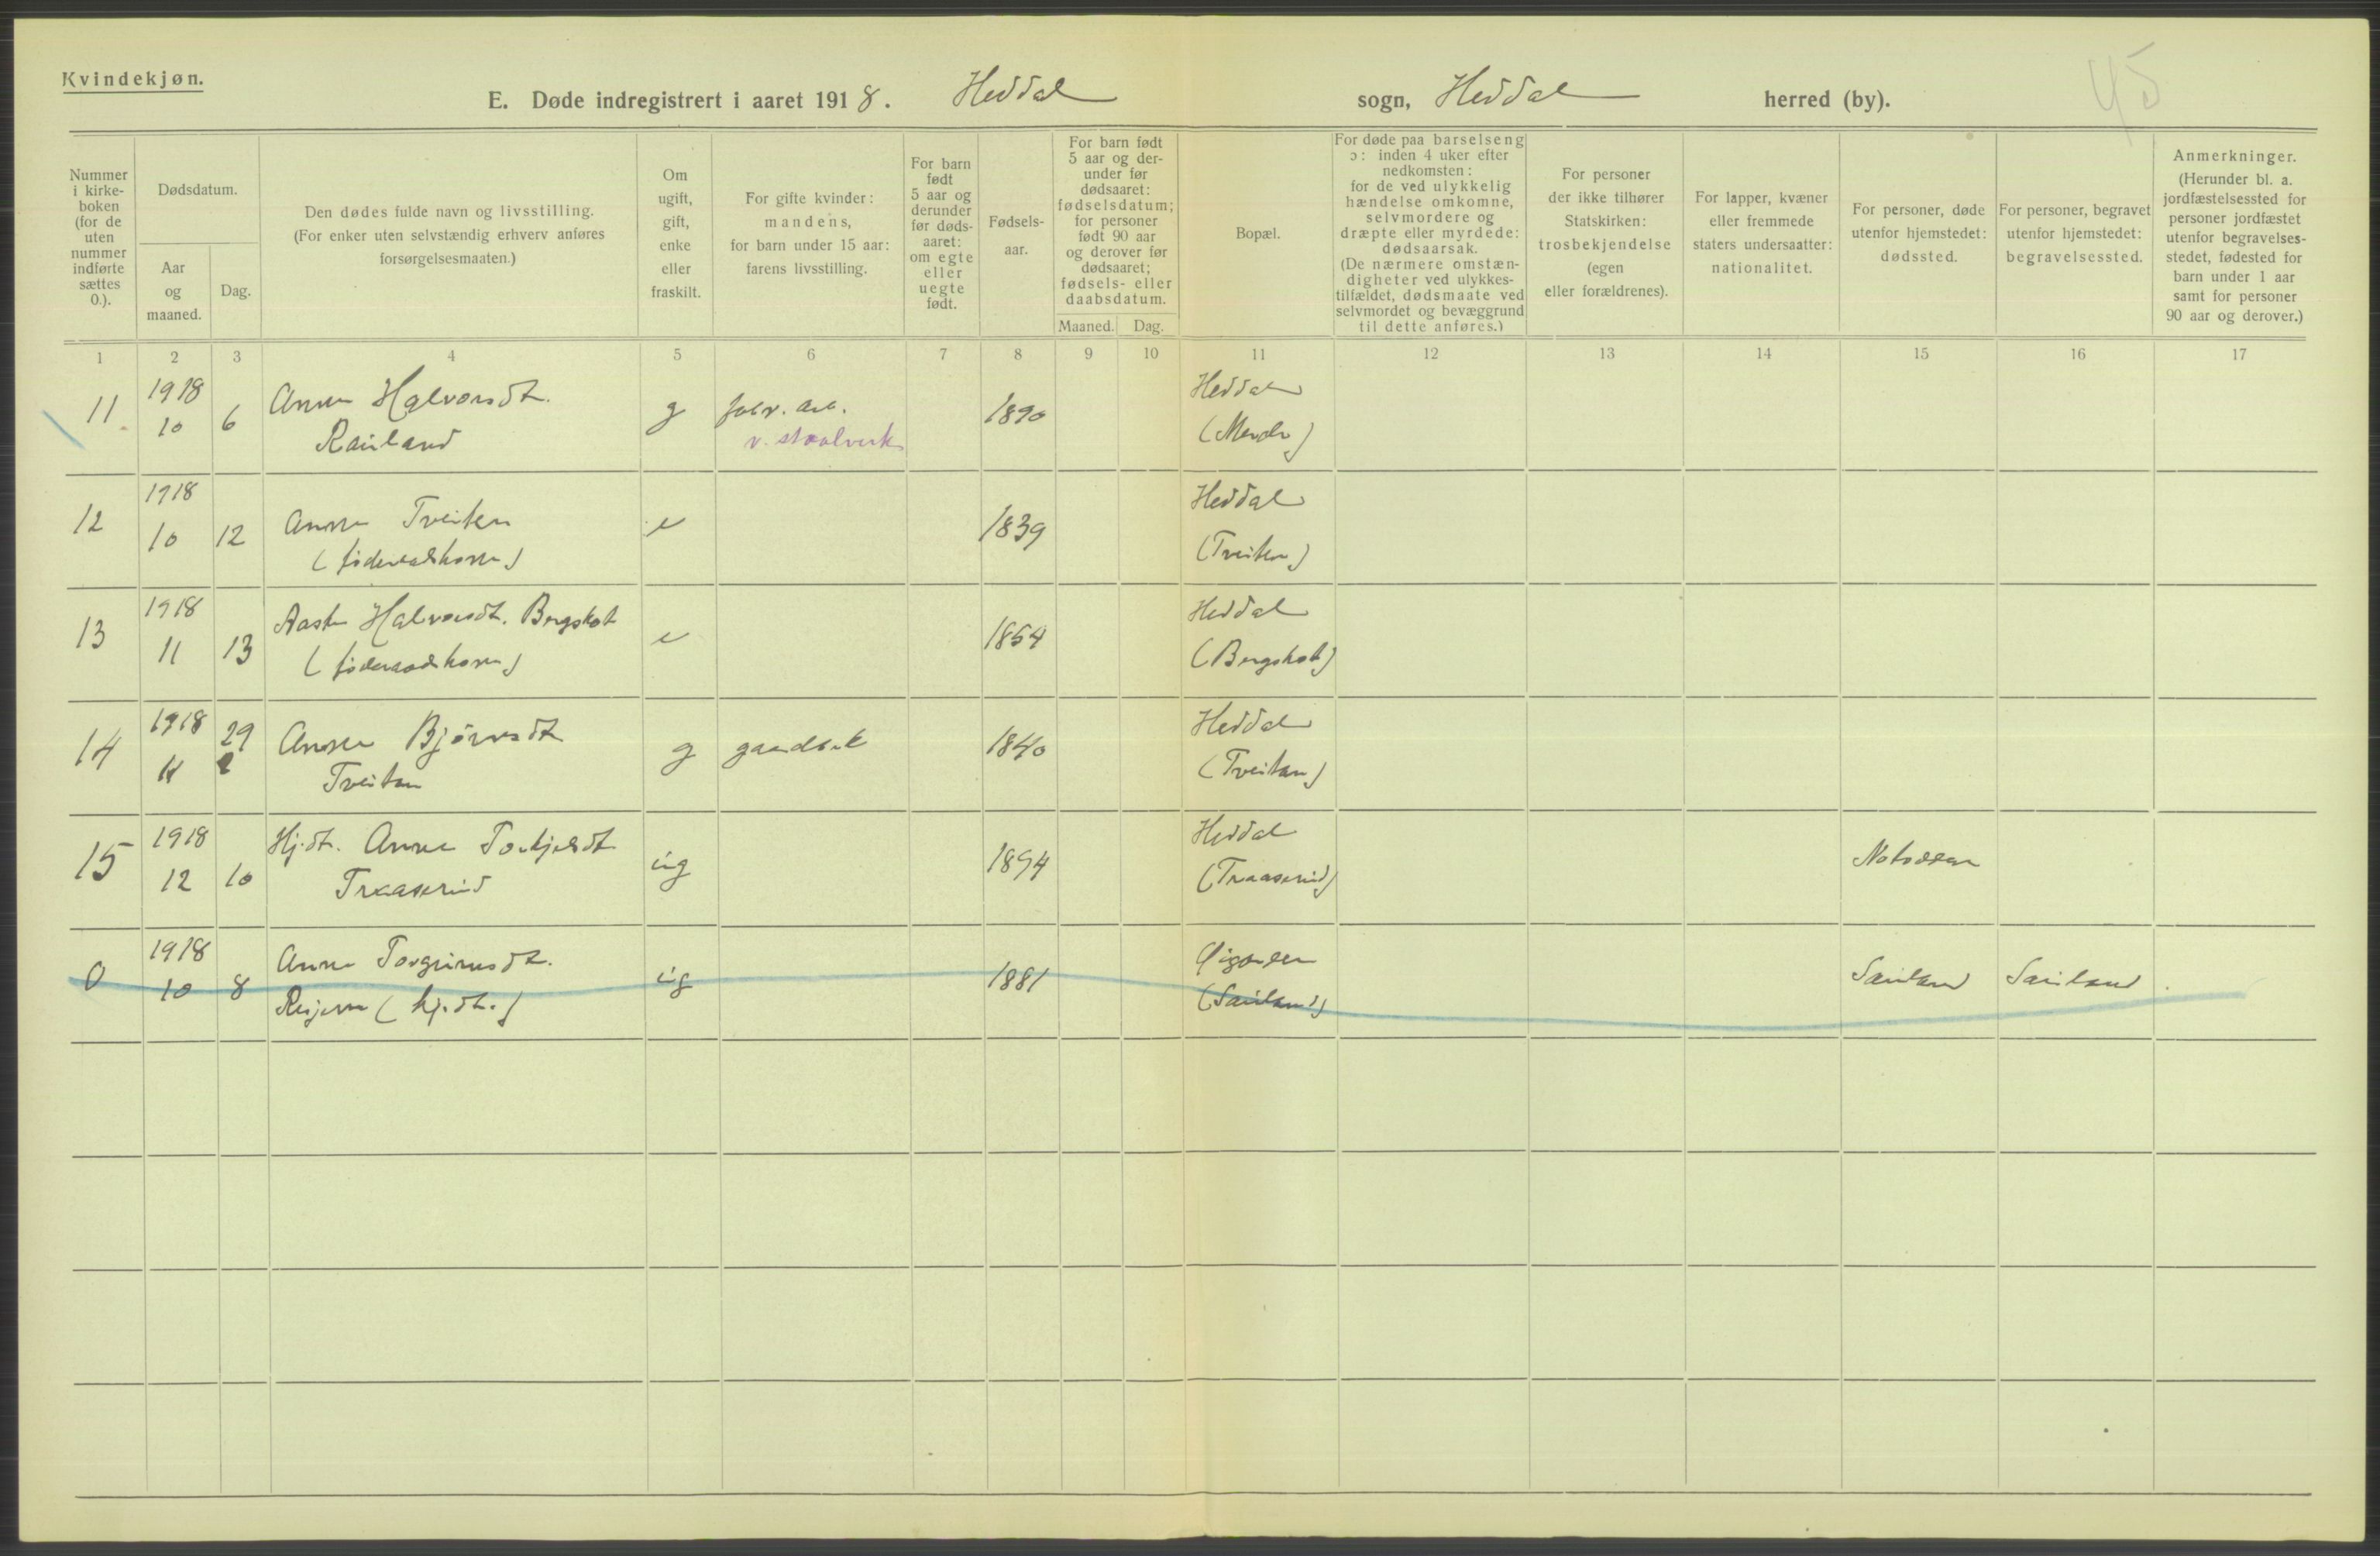 Kvindekjøn.
45
E. Døde indregistrert i aaret 1918. Heddal sogn, Heddal herred (by).
Nummer
i kirke-
boken
(for de
uten
nummer
indførte
sættes
0.).
Dødsdatum.
Aar
og
maaned.
Dag.
Den dødes fulde navn og livsstilling.
(For enker uten selvstændig erhverv anføres
forsørgelsesmaaten.)
Om
ugift,
gift,
enke
eller
fraskilt.
For gifte kvinder:
mandens,
for barn under 15 aar:
farens livsstilling.
For barn
født
5 aar og
derunder
før døds-
aaret:
om egte
eller
uegte
født.
Fødsels-
aar.
For barn født
5 aar og der-
under før
dødsaaret:
fødselsdatum;
for personer
født 90 aar
og derover før
dødsaaret;
fødsels- eller
daabsdatum.
Maaned. Dag.
Bopæl.
For døde paa barselseng
ɔ: inden 4 uker efter
nedkomsten:
for de ved ulykkelig
hændelse omkomne,
selvmordere og
dræpte eller myrdede:
dødsaarsak.
(De nærmere omstæn-
digheter ved ulykkes-
tilfældet, dødsmaate ved
selvmordet og bevæggrund
til dette anføres.)
For personer
der ikke tilhører
Statskirken:
trosbekjendelse
(egen
eller forældrenes).
For lapper, kvæner
eller fremmede
staters undersaatter:
nationalitet.
For personer, døde
utenfor hjemstedet:
dødssted.
For personer, begravet
utenfor hjemstedet:
begravelsessted.
Anmerkninger.
(Herunder bl. a.
jordfæstelsessted for
personer jordfæstet
utenfor begravelses-
stedet, fødested for
barn under 1 aar
samt for personer
90 aar og derover.)
1 2 3 4 5 6 7 8 9 10 11 12 13 14 15 16 17
1918 Heddal
11 10 6 Anne Halvorsdt. g fabr. arb. 1890
Rauland v. staalverk
12 1918 Heddal
10 12 Anne Tveiten e 1839
(føderaadskone) (Tveiten)
13 1918 Aaste Halvorsdt. Bergskot Heddal
11 13 e 1854
(føderaadskone) (Bergskot)
14 1918 29 Anne Bjørnsdt Heddal
11 g gaardbr. 1840
Tveitan (Tveitan)
15 1918 Hj.dt. Anne Torkjelsdt Heddal
12 10 ug 1894 Notodden
Traaserud (Traaserud)
0 1918 Anne Torgrimsdt.
10 8 ug 1881 Sauland Sauland
(hj.dt.) (Sauland)